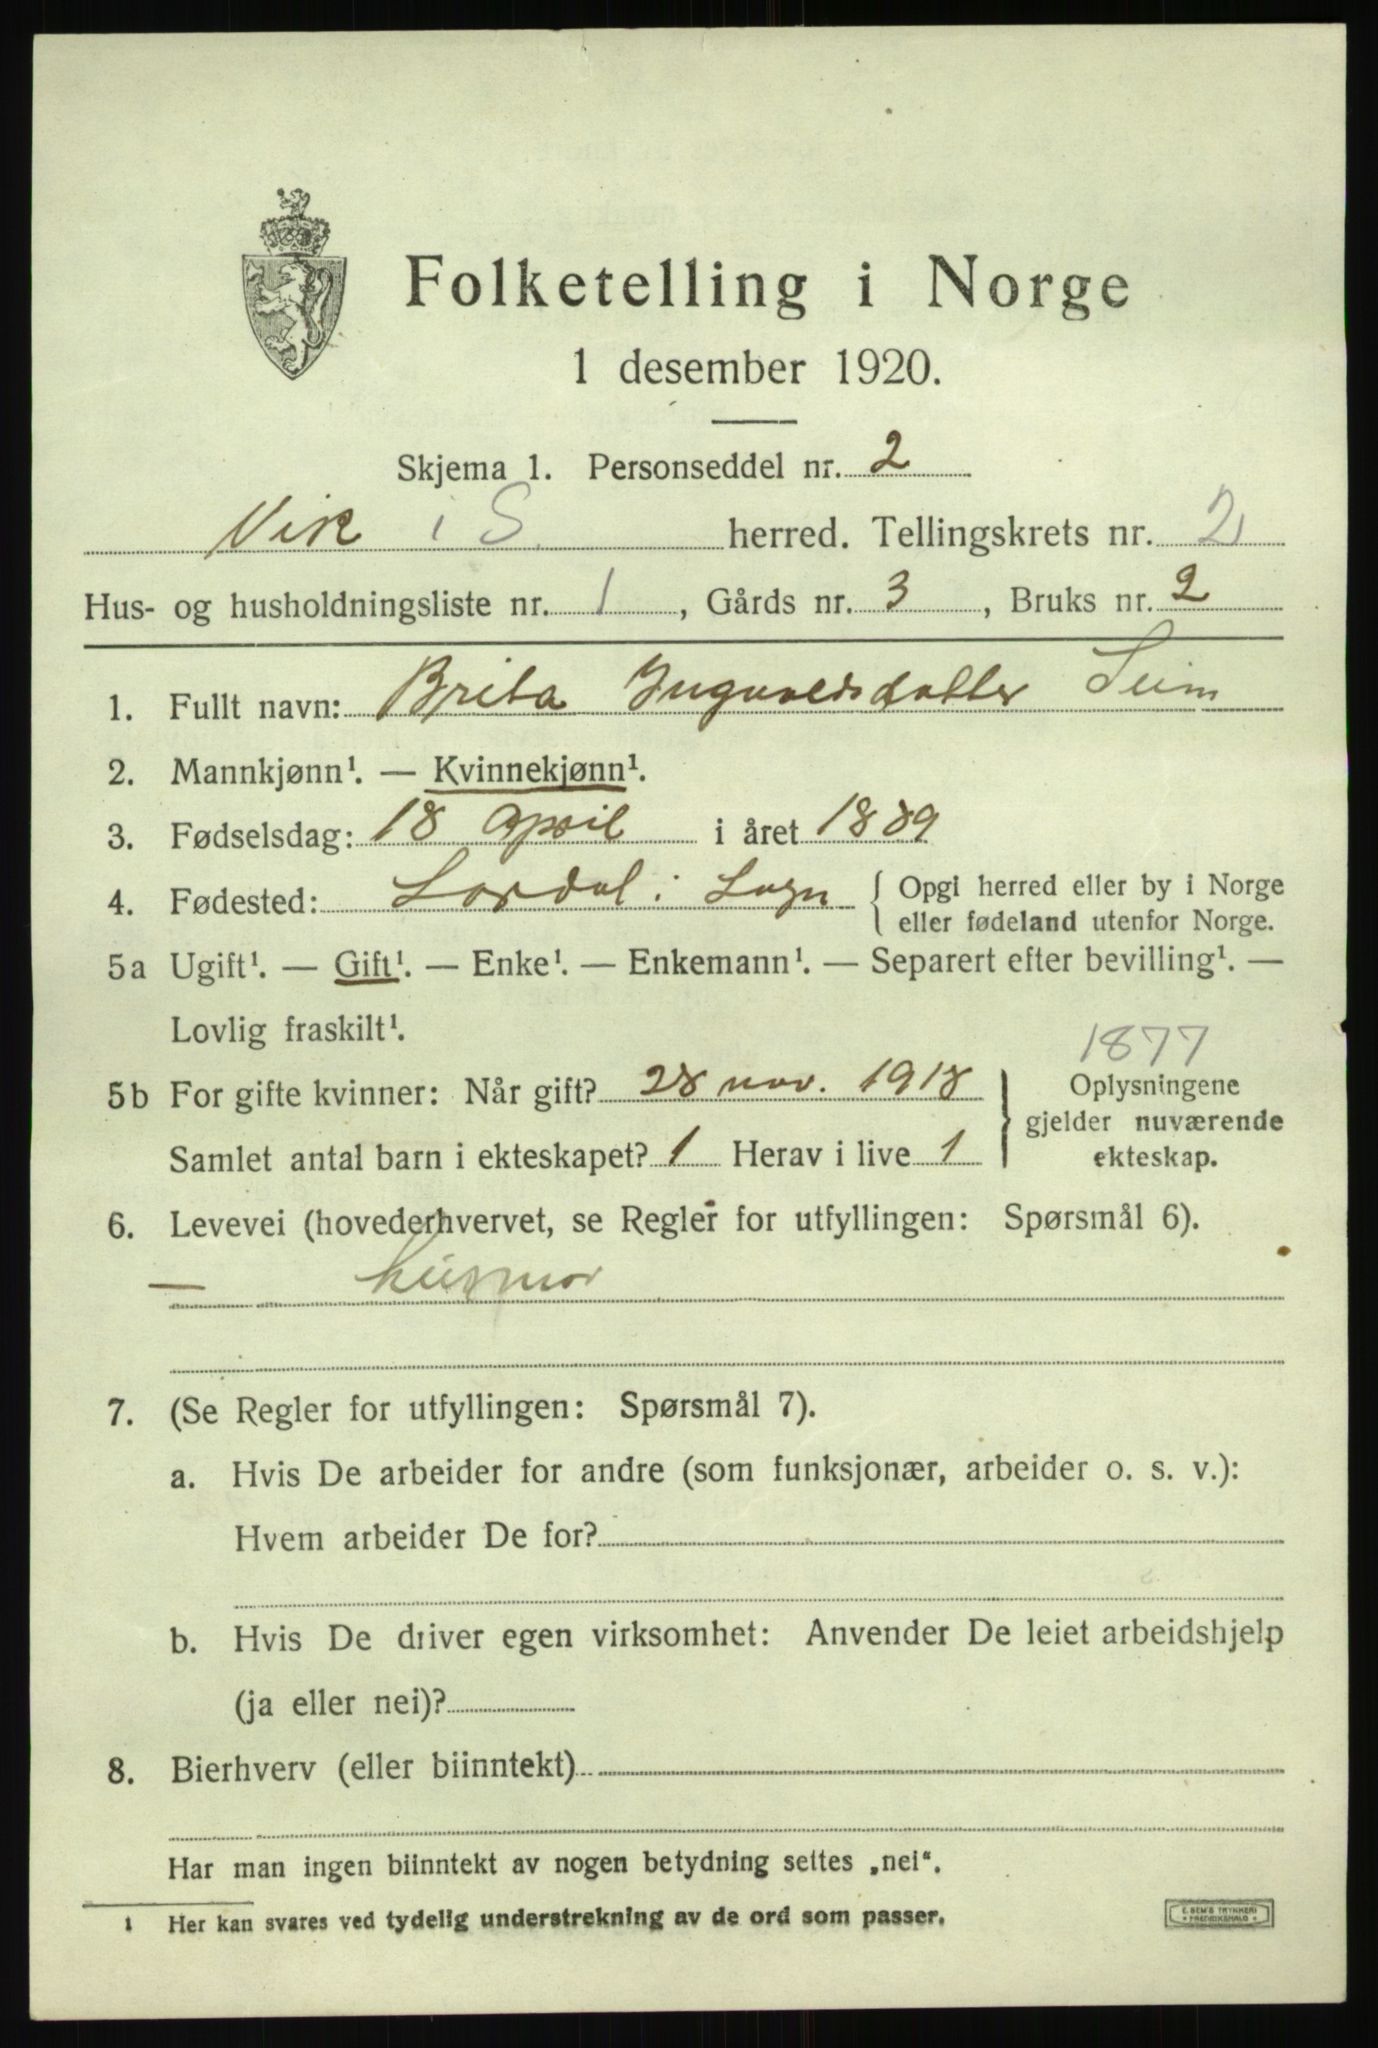 Folketelling i Norge
1 desember 1920.
Skjema 1. Personseddel nr. 2
Vik i S. herred. Tellingskrets nr. 2
Hus- og husholdningsliste nr. 1, Gårds nr. 3, Bruks nr. 2
1. Fullt navn: Brita Ingvaldsdatter Seim
2. Mannkjønn¹. — Kvinnekjønn¹.
3. Fødselsdag: 18 April i året 1889
4. Fødested: Lærdal i Sogn { Opgi herred eller by i Norge
eller fødeland utenfor Norge.
5a Ugift¹. — Gift¹. — Enke¹. — Enkemann¹. — Separert efter bevilling¹. —
Lovlig fraskilt¹.
1877
5b For gifte kvinner: Når gift? 28 nov. 1918 } Oplysningene
gjelder nuværende
Samlet antal barn i ekteskapet? 1 Herav i live 1 ekteskap.
6. Levevei (hovederhvervet, se Regler for utfyllingen: Spørsmål 6).
— husmor
7. (Se Regler for utfyllingen: Spørsmål 7).
a. Hvis De arbeider for andre (som funksjonær, arbeider o. s. v.):
Hvem arbeider De for?
b. Hvis De driver egen virksomhet: Anvender De leiet arbeidshjelp
(ja eller nei)?
8. Bierhverv (eller biinntekt)
Har man ingen biinntekt av nogen betydning settes „nei“.
¹ Her kan svares ved tydelig understrekning av de ord som passer.
E. SEM'S TRYKKERI
FREDRIKSHALD